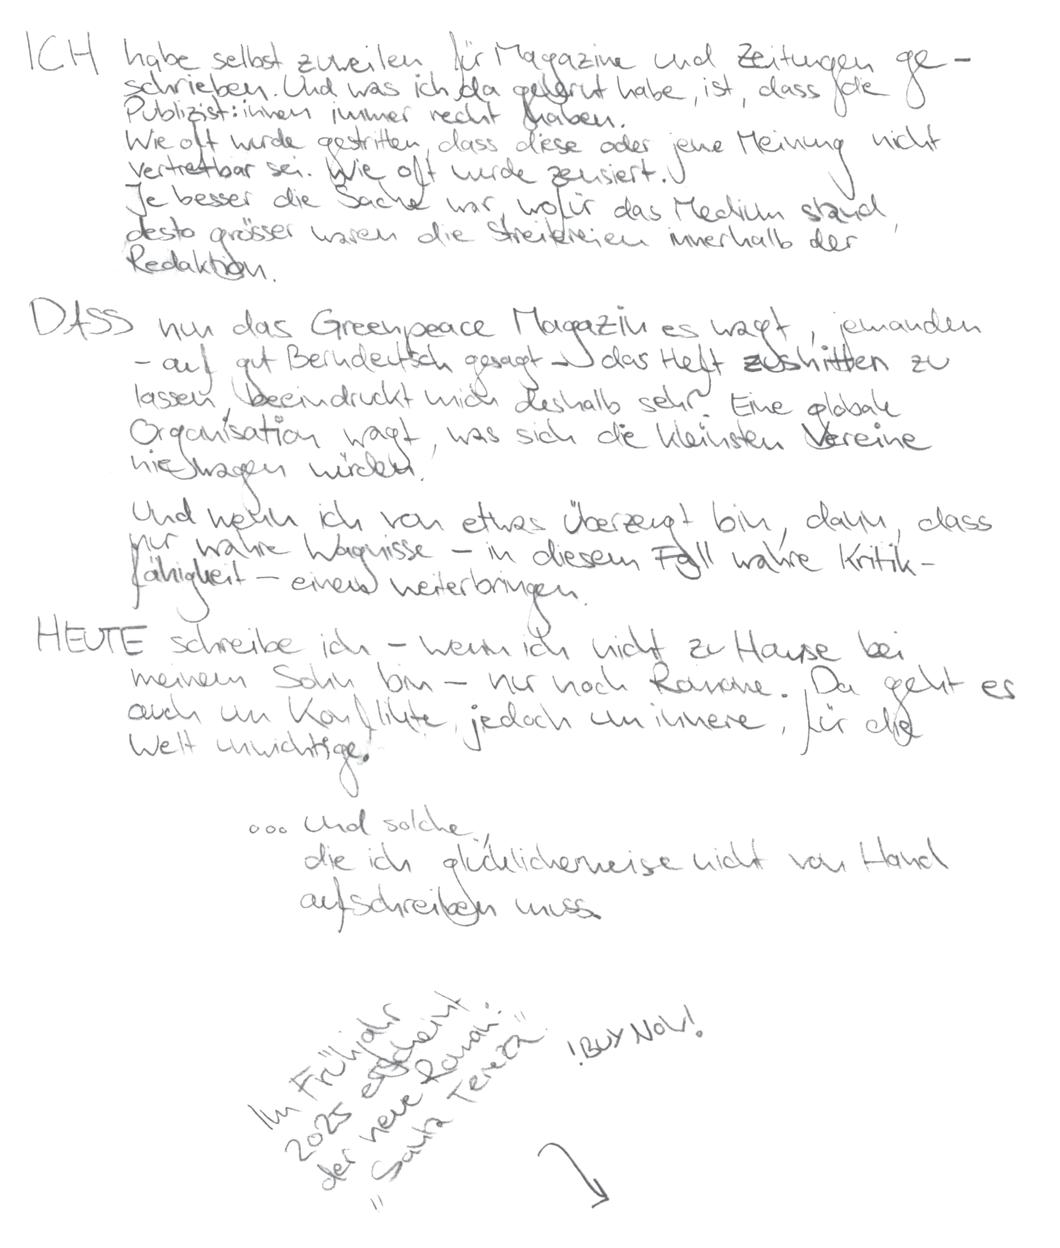 ICH habe selbst zuweilen für Magazine und Zeitungen ge-
schrieben. Und was ich da gelernt habe, ist, dass die
Publizist:innen immer recht haben.
Wie oft wurde gestritten, dass diese oder jene Meinung nicht
vertretbar sei. Wie oft wurde zensiert.
Je besser die Sache war, wofür das Medium stand,
desto grösser waren die Streitereien innerhalb der
Redaktion.
DASS nun das Greenpeace Magazin es wagt, jemanden
- auf gut Berndeutsch gesagt - das Heft zushitten zu
lassen, beeindruckt mich deshalb sehr. Eine globale
Organisation wagt, was sich die kleinsten Vereine
nie wagen würden.
Und wenn ich von etwas überzeugt bin, dann, dass
nur wahre Wagnisse - in diesem Fall wahre Kritik-
fähigkeit - einen weiterbringen.
HEUTE schreibe ich - wenn ich nicht zu Hause bei
meinem Sohn bin - nur noch Romane. Da geht es
auch um Konflikte, jedoch um innere, für die
Welt unwichtige.
... und solche,
die ich glücklicherweise nicht von Hand
aufschreiben muss.
Im Frühjahr
2025 erscheint
der neue Roman:
"Santa Tereza"
!BUY NOW!